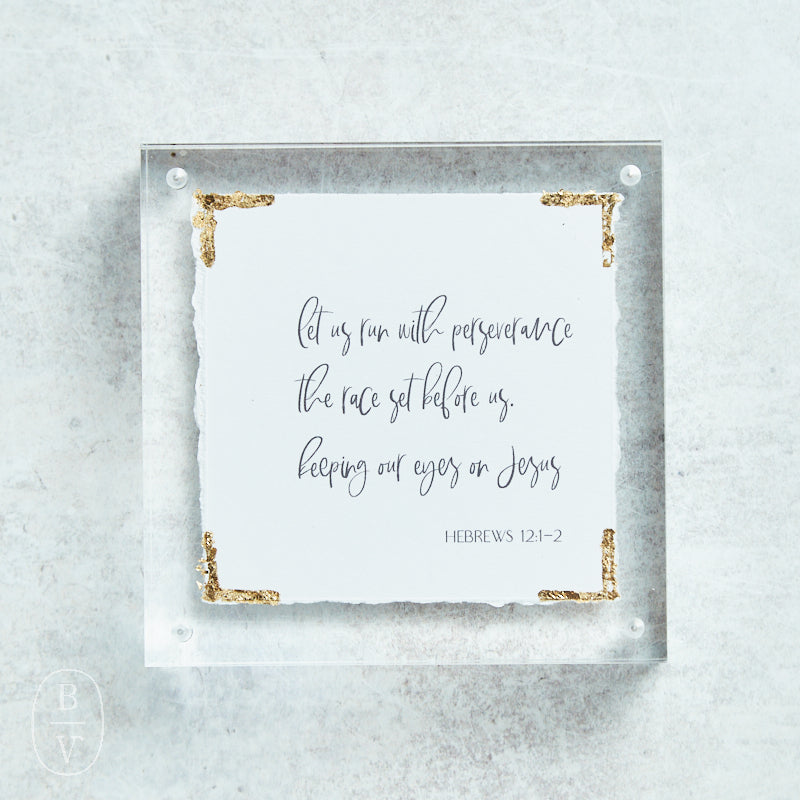 let us run with perseverance
the race set before us.
keeping our eyes on Jesus
HEBREWS 12:1-2
B
V